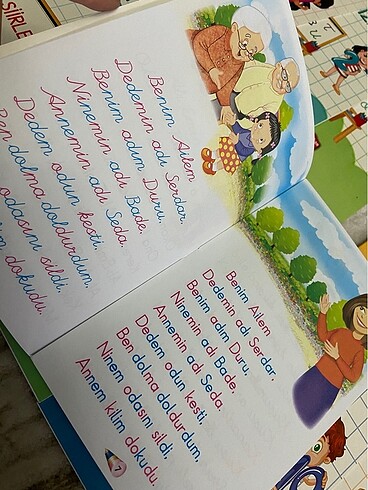 ŞİİRLER
Benim Ailem
Dedemin adı Serdar.
Benim adım Duru.
Ninemin adı Bade.
Annemin adı Seda.
Dedem odun kesti.
Ben dolma doldurdum.
odasını sildi.
dokudu.
Benim Ailem
Dedemin adı Serdar.
Benim adım Duru.
Ninemin adı Bade.
Annemin adı Seda.
Dedem odun kesti.
Ben dolma doldurdum.
Ninem odasını sildi.
Annem kilim dokudu.
7